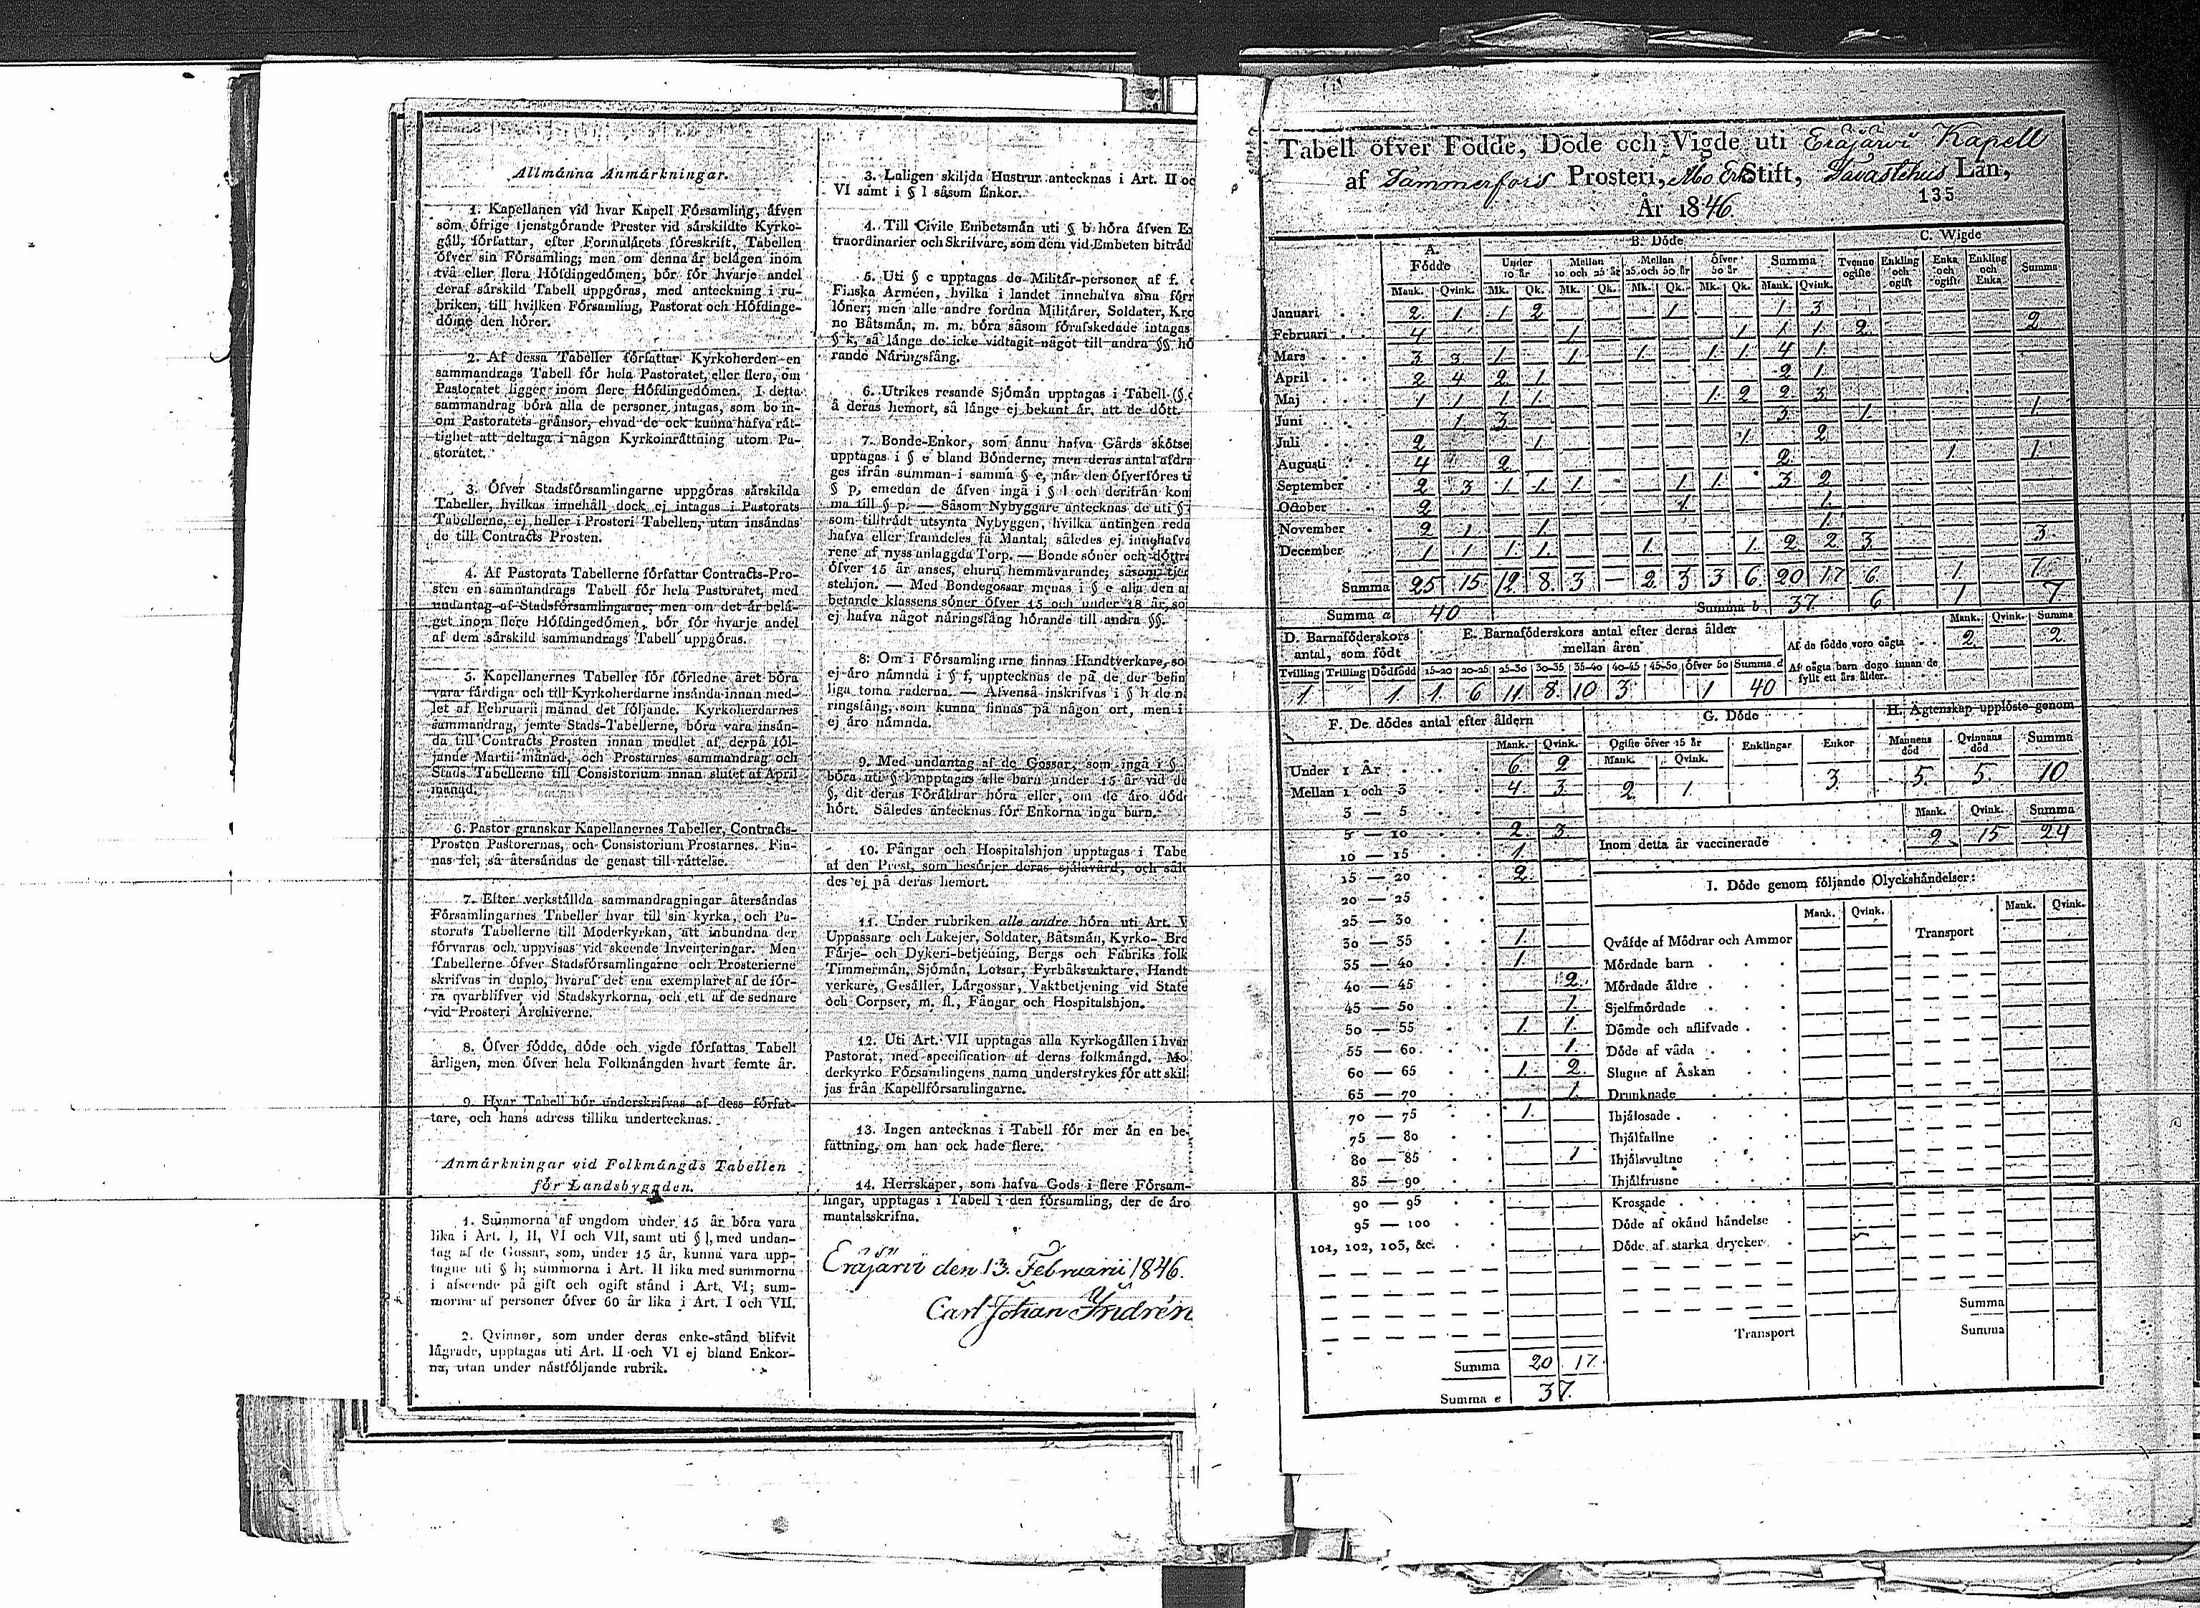 Allmänna Anmärkningar.
1. Kapellanen vid hvar Kapell Församling, äfven
som öfrige tjenstgörande Prester vid särskildte Kyrko-
gäll, författar, efter Formulärets föreskrift, Tabellen
öfver sin Församling; men om denna är belägen inom
två eller flera Höfdingedömen, bör för hvarje andel
deraf särskild Tabell uppgöras, med anteckning i ru-
briken, till hvilken Församling, Pastorat och Höfdinge-
döme den hörer.
2. Af dessa Tabeller författar Kyrkoherden en
sammandrags Tabell för hela Pastoratet, eller flera, om
Pastoratet ligger inom flere Höfdingedömen. I detta
sammandrag böra alla de personer intagas, som bo in-
om Pastoratets gränsor, ehvad de ock kunna hafva rät-
tighet att deltaga i någon Kyrkoinrättning utom Pa-
storatet.
3. Öfver Stadsförsamlingarne uppgöras särskilda
Tabeller, hvilkas innehåll dock ej intagas i Pastorats
Tabellerne, ej heller i Prosteri Tabellen, utan insändas
de till Contracts Prosten.
4. Af Pastorats Tabellerne författar Contracts-Pro-
sten en sammandrags Tabell för hela Pastoratet, med
undantag af Stadsförsamlingarne; men om det är belä-
get inom flere Höfdingedömen, bör för hvarje andel
af dem särskild sammandrags Tabell uppgöras.
5. Kapellanernes Tabeller för förledne året böra
vara färdiga och till Kyrkoherdarne insända innan med-
let af Februarii månad det följande. Kyrkoherdarnes
sammandrag, jemte Stads-Tabellerne, böra vara insän-
da till Contracts Prosten innan medlet af derpå föl-
jande Martii månad, och Prostarnes sammandrag och
Stads Tabellerne till Consistorium innan slutet af April
månad.
6. Pastor granskar Kapellanernes Tabeller, Contracts-
Prosten Pastorernas, och Consistorium Prostarnes. Fin-
nas fel, så återsändas de genast till rättelse.
7. Efter verkställda sammandragningar återsändas
Församlingarnes Tabeller hvar till sin kyrka, och Pa-
storats Tabellerne till Moderkyrkan, att inbundna der
förvaras och uppvisas vid skeende Inventeringar. Men
Tabellerne öfver Stadsförsamlingarne och Prosterierne
skrifvas in duplo, hvaraf det ena exemplaret af de för-
ra qvarblifver vid Stadskyrkorna, och ett af de sednare
vid Prosteri Archiverne.
8. Öfver födde, döde och vigde författas Tabell
årligen, men öfver hela Folkmängden hvart femte år.
9. Hvar Tabell bör underskrifvas af dess förfat-
tare, och hans adress tillika undertecknas.
Anmärkningar vid Folkmängds Tabellen
för Landsbygden.
1. Summorna af ungdom under 15 år böra vara
lika i Art. I, II, VI och VII, samt uti § l, med undan-
tag af de Gossar, som, under 15 år, kunna vara upp-
tagne uti § h; summorna i Art. II lika med summorna
i afseende på gift och ogift stånd i Art. VI; sum-
morna af personer öfver 60 år lika i Art. I och VII.
2. Qvinnor, som under deras enke-stånd blifvit
lägrade, upptagas uti Art. II och VI ej bland Enkor-
na, utan under nästföljande rubrik.
3. Laligen skiljda Hustrur antecknas i Art. II oc
VI samt i § l såsom Enkor.
4. Till Civile Embetsmän uti § b höra äfven E
traordinarier och Skrifvare, som dem vid Embeten biträd
5. Uti § c upptagas de Militär-personer af f.
Finska Arméen, hvilka i landet innehafva sina förr
löner; men alle andre fordna Militärer, Soldater, Kro
no Båtsmän, m. m. böra såsom förafskedade intagas
§ k, så länge de icke vidtagit något till andra §§ hö
rande Näringsfång.
6. Utrikes resande Sjömän upptagas i Tabell (§ c
å deras hemort, så länge ej bekant är, att de dött.
7. Bonde-Enkor, som ännu hafva Gårds skötse
upptagas i § e bland Bönderne, men deras antal afdra
ges ifrån summan i samma § e, när den öfverföres ti
§ p, emedan de äfven ingå i § l och derifrån kom
ma till § p. — Såsom Nybyggare antecknas de uti §
som tillträdt utsynta Nybyggen, hvilka antingen reda
hafva eller framdeles få Mantal; således ej innehafva
rene af nyss anlaggda Torp. — Bonde söner och döttra
öfver 15 år anses, ehuru hemmavarande, såsom tjen
stehjon. — Med Bondegossar menas i § e alla den a
betande klassens söner öfver 15 och under 18 år, so
ej hafva något näringsfång hörande till andra §§.
8. Om i Församlingarne finnas Handtverkare, so
ej äro nämnda i § f, upptecknas de på de der befin
liga toma raderna. — Äfvenså inskrifvas i § h de n
ringsfång, som kunna finnas på någon ort, men i
ej äro nämnda.
9. Med undantag af de Gossar, som ingå i §
böra uti § l upptagas alle barn under 15 år vid de
§, dit deras Föräldrar höra eller, om de äro död
hört. Således antecknas för Enkorna inga barn.
10. Fångar och Hospitalshjon upptagas i Tabe
af den Prest, som besörjer deras själavård, och såle
des ej på deras hemort.
11. Under rubriken alle andre höra uti Art. V
Uppassare och Lakejer, Soldater, Båtsmän, Kyrko- Bro
Färje- och Dykeri-betjening, Bergs och Fabriks folk
Timmermän, Sjömän, Lotsar, Fyrbåksvaktare, Handt
verkare, Gesäller, Lärgossar, Vaktbetjening vid State
och Corpser, m. fl., Fångar och Hospitalshjon.
12. Uti Art. VII upptagas alla Kyrkogällen i hvar
Pastorat, med specification af deras folkmängd. Mo
derkyrko Församlingens namn understrykes för att skil
jas från Kapellförsamlingarne.
13. Ingen antecknas i Tabell för mer än en be-
fattning, om han ock hade flere.
14. Herrskaper, som hafva Gods i flere Försam-
lingar, upptagas i Tabell i den församling, der de äro
mantalsskrifna.
Eräjärvi den 13. Februarii 1846.
Carl Johan Indrén
Tabell öfver Födde, Döde och Vigde uti Eräjärvi Kapell
af Tammerfors Prosteri, Åbo Erke Stift, Tavastehus Län,
År 1846.
135
A. Födde B. Döde C. Wigde
Under 10 år Mellan 10 och 25 år Mellan 25 och 50 år Öfver 50 år Summa Tvenne ogifte Enkling och ogift Enka och ogift Enkling och Enka Summa
Mank. Qvink. Mk. Qk. Mk. Qk. Mk. Qk. Mk. Qk. Mank. Qvink.
Januari 2 1 1 2 1 1 3
Februari 4 1 1 1 1 2 2
Mars 3 3 1 1 1 1 1 4 1
April 2 4 2 1 2 1
Maj 1 1 1 1 1 2 2 3
Juni 1 3 3 1 1
Juli 2 1 1 2
Augusti 4 2 2 1 1
September 2 3 1 1 1 1 1 3 2
October 2 1 1
November 2 1 1 1
December 1 1 1 1 1 1 2 2 3 3
Summa 25 15 12 8 3 — 2 3 3 6 20 17 6 1 1
Summa a 40 Summa b 37 6 1 7
D. Barnaföderskors antal, som födt
Tvilling Trilling Dödfödd
1 1
E. Barnaföderskors antal efter deras ålder mellan åren
15-20 20-25 25-30 30-35 35-40 40-45 45-50 Öfver 50 Summa d
1 6 11 8 10 3 1 40
Mank. Qvink. Summa
Af de födde voro oägta 2 2
Af oägta barn dogo innan de fyllt ett års ålder.
F. De dödes antal efter åldern
Mank. Qvink.
Under 1 År 6 2
Mellan 1 och 3 4 3
3 — 5
5 — 10 2 3
10 — 15 1
15 — 20 2
20 — 25
25 — 30
30 — 35 1
35 — 40 1
40 — 45 2
45 — 50 1
50 — 55 1 1
55 — 60 1
60 — 65 1 2
65 — 70 1
70 — 75 1
75 — 80
80 — 85 1
85 — 90
90 — 95
95 — 100
101, 102, 103, &c.
Summa 20 17
Summa e 37
G. Döde
Ogifte öfver 15 år Enklingar Enkor
Mank. Qvink.
2 1 3
H. Ägtenskap upplöste genom
Mannens död Qvinnans död Summa
5 5 10
Mank. Qvink. Summa
Inom detta år vaccinerade 9 15 24
I. Döde genom följande Olyckshändelser:
Mank. Qvink. Mank. Qvink.
Qväfde af Mödrar och Ammor Transport
Mördade barn
Mördade äldre
Sjelfmördade
Dömde och aflifvade
Döde af våda
Slagne af Åskan
Drunknade
Ihjälosade
Ihjälfallne
Ihjälsvultne
Ihjälfrusne
Krossade
Döde af okänd händelse
Döde af starka drycker
Summa
Transport Summa